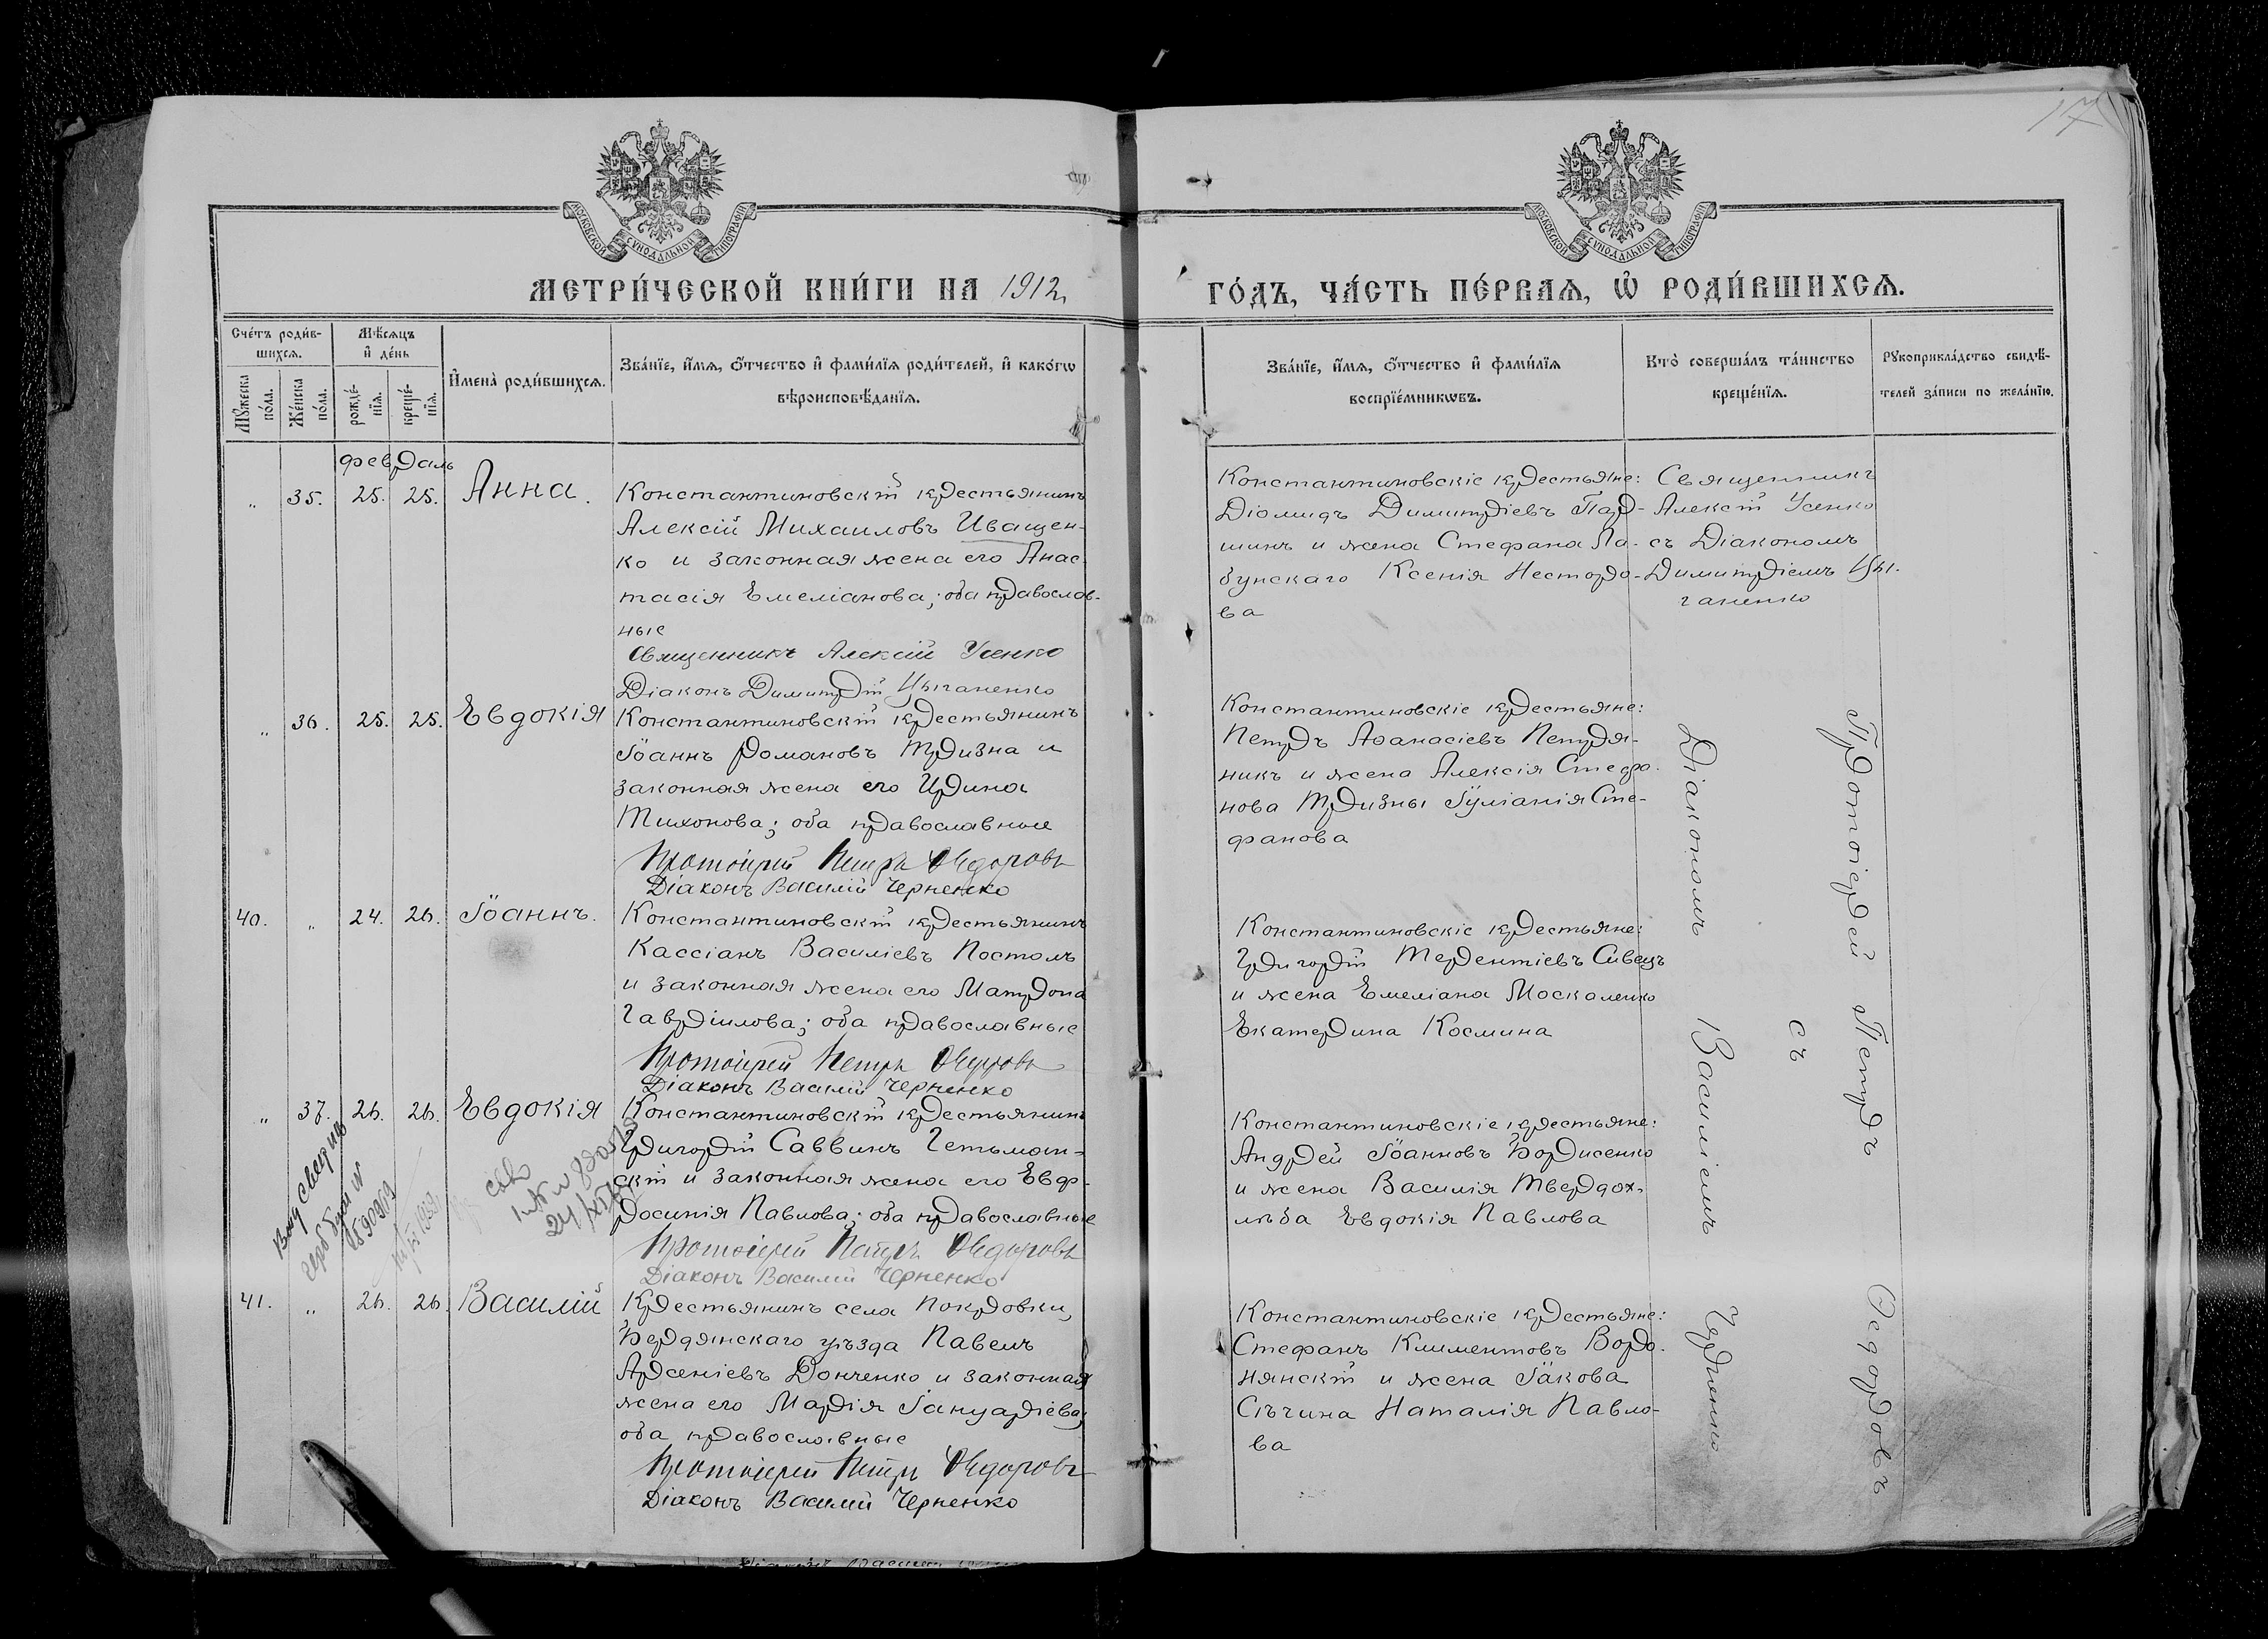 17
МОСКОВСКОЙ СУНОДАЛЬНОЙ ТИПОГРАФІИ
МОСКОВСКОЙ СУНОДАЛЬНОЙ ТИПОГРАФІИ
МЕТРИ́ЧЕСКОЙ КНИ́ГИ НА 1912
ГО́ДЪ, ЧА́СТЬ ПЕ́РВАѦ, Ѽ РОДИ́ВШИХСѦ.
Сче́тъ роди́в-
шихсѧ.
Мꙋ́жеска по́ла.
Же́нска по́ла.
Мѣ́сѧцъ
и҆ де́нь
рожде́-нїѧ.
креще́-нїѧ.
И҆мена̀ роди́вшихсѧ.
Зва́нїе, и҆́мѧ, ѻ҆́тчество и҆ фами́лїѧ роди́телей, и҆ како́гѡ
вѣроисповѣ́данїѧ.
Зва́нїе, и҆́мѧ, ѻ҆́тчество и҆ фами́лїѧ
воспрїе́мникѡвъ.
Кто̀ соверша́лъ та́инство
креще́нїѧ.
Рꙋкоприкла́дство свидѣ́-
телей за́писи по жела́нїю.
февраль
„ 35. 25. 25. Анна.
Константиновскій крестьянинъ
Алексій Михаиловъ Иващен-
ко и законная жена его Анас-
тасія Емеліанова; оба православ-
ные
Священникъ Алексій Усенко
Діаконъ Димитрій Цыганенко
Константиновскіе крестьяне:
Діомидъ Димитріевъ Пар-
шинъ и жена Стефана Ла-
бунскаго Ксенія Несторо-
ва
Священникъ
Алексій Усенко
съ Діакономъ
Димитріемъ Цы-
ганенко
„ 36. 25. 25. Евдокія
Константиновскій крестьянинъ
Іоаннъ Романовъ Тризна и
законная жена его Ирина
Тихонова; оба православные
Протоіерей Петръ Ѳедоровъ
Діаконъ Василій Черненко
Константиновскіе крестьяне:
Петръ Аѳанасіевъ Петря-
никъ и жена Алексія Стефа-
нова Тризны Іуліанія Сте-
фанова
Протоіерей Петръ Ѳедоровъ
съ
Діакономъ Василіемъ Черненко
40. „ 24. 26. Іоаннъ.
Константиновскій крестьянинъ
Кассіанъ Василіевъ Постолъ
и законная жена его Матрона
Гавріилова; оба православные
Протоіерей Петръ Ѳедоровъ
Діаконъ Василій Черненко
Константиновскіе крестьяне:
Григорій Терентіевъ Сивецъ
и жена Емеліана Москаленко
Екатерина Космина
„ 37. 26. 26. Евдокія
Константиновскій крестьянинъ
Григорій Саввинъ Гетьман-
скій и законная жена его Евф-
росинія Павлова; оба православные
Протоіерей Петръ Ѳедоровъ
Діаконъ Василій Черненко
Константиновскіе крестьяне:
Андрей Іоанновъ Борисенко
и жена Василія Твердох-
лѣба Евдокія Павлова
41. „ 26. 26. Василій
Крестьянинъ села Покровки,
Бердянскаго уѣзда Павелъ
Арсеніевъ Донченко и законная
жена его Марія Іануаріева;
оба православные
Протоіерей Петръ Ѳедоровъ
Діаконъ Василій Черненко
Константиновскіе крестьяне:
Стефанъ Климентовъ Воро-
нянскій и жена Іакова
Сѣчина Наталія Павло-
ва